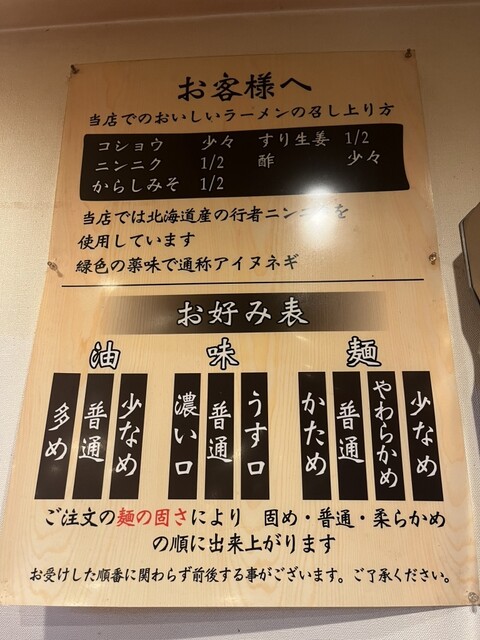 お客様へ
当店でのおいしいラーメンの召し上り方
コショウ 少々 すり生姜 1/2
ニンニク 1/2 酢 少々
からしみそ 1/2
当店では北海道産の行者ニンニクを
使用しています
緑色の薬味で通称アイヌネギ
お好み表
油 味 麺
多め 普通 少なめ 濃い口 普通 うす口 かため 普通 やわらかめ 少なめ
ご注文の麺の固さにより 固め・普通・柔らかめ
の順に出来上がります
お受けした順番に関わらず前後する事がございます。ご了承ください。